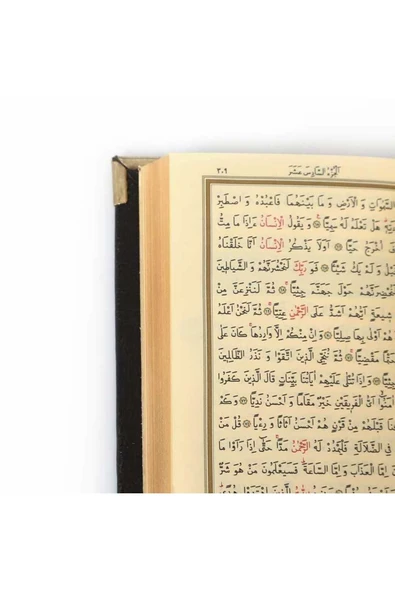 الجزء السادس عشر ٣٠٩
السَّمٰوَاتِ وَ الْاَرْضِ وَ مَا بَيْنَهُمَا فَاعْبُدْهُ وَ اصْطَبِرْ
هَلْ تَعْلَمُ لَهُ سَمِيًّا ۞ وَ يَقُولُ الْاِنْسَانُ ءَاِذَا مَا مِتُّ
اُخْرَجُ حَيًّا ۞ اَوَلَا يَذْكُرُ الْاِنْسَانُ اَنَّا خَلَقْنَاهُ
قَبْلُ وَ لَمْ يَكُ شَيْئًا ۞ فَوَ رَبِّكَ لَنَحْشُرَنَّهُمْ وَ الشَّيَاطِينَ
لَنُحْضِرَنَّهُمْ حَوْلَ جَهَنَّمَ جِثِيًّا ۞ ثُمَّ لَنَنْزِعَنَّ مِنْ
شِيعَةٍ اَيُّهُمْ اَشَدُّ عَلَى الرَّحْمٰنِ عِتِيًّا ۞ ثُمَّ لَنَحْنُ اَعْلَمُ
هُمْ اَوْلٰى بِهَا صِلِيًّا ۞ وَ اِنْ مِنْكُمْ اِلَّا وَارِدُهَا كَانَ عَلٰى
حَتْمًا مَقْضِيًّا ۞ ثُمَّ نُنَجِّي الَّذِينَ اتَّقَوْا وَ نَذَرُ الظَّالِمِينَ
۞ وَ اِذَا تُتْلٰى عَلَيْهِمْ اٰيَاتُنَا بَيِّنَاتٍ قَالَ الَّذِينَ كَفَرُوا
اٰمَنُوا اَيُّ الْفَرِيقَيْنِ خَيْرٌ مَقَامًا وَ اَحْسَنُ نَدِيًّا ۞ وَ كَمْ
قَبْلَهُمْ مِنْ قَرْنٍ هُمْ اَحْسَنُ اَثَاثًا وَ رِءْيًا ۞ قُلْ مَنْ
فِي الضَّلَالَةِ فَلْيَمْدُدْ لَهُ الرَّحْمٰنُ مَدًّا حَتّٰى اِذَا رَاَوْا مَا
اِمَّا الْعَذَابَ وَ اِمَّا السَّاعَةَ فَسَيَعْلَمُونَ مَنْ هُوَ شَرٌّ
الَّذِينَ اهْتَدَوْا هُدًى